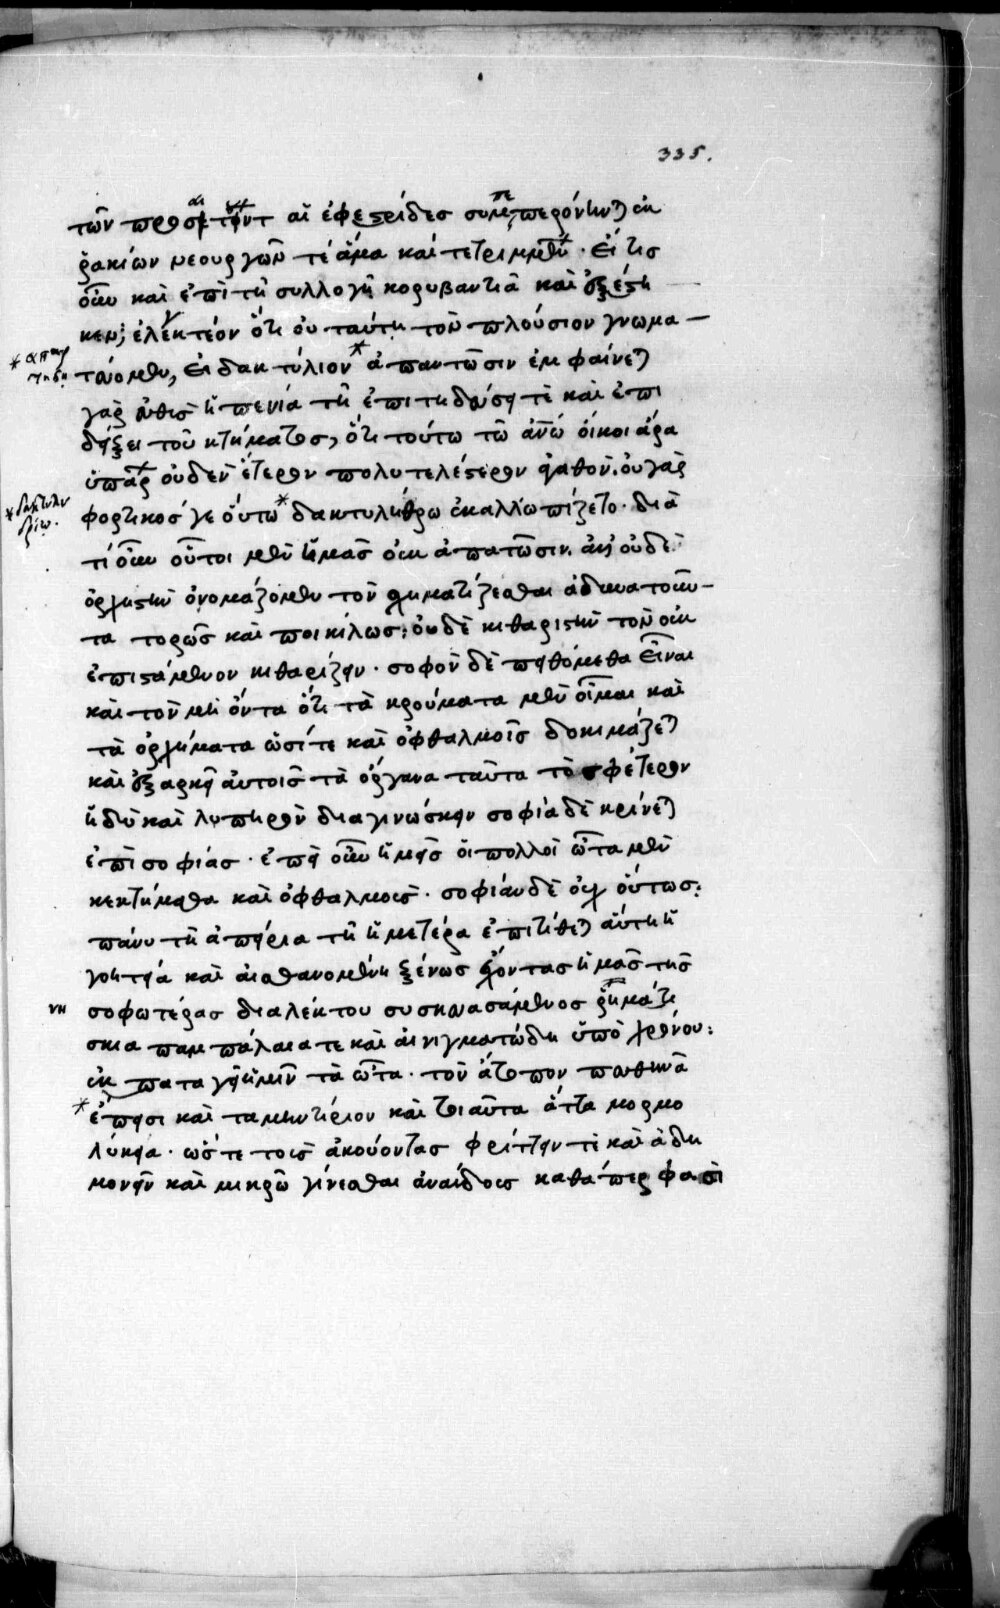 335.
τῶν προσ αἱ ἐφεστρίδες συμπεπερόνηνται ἐκ
ῥακίων νεουργῶν τέ ἅμα καὶ τετριμμένων. εἴ τις
οὖν καὶ ἐπὶ τῇ συλλογῇ κορυβαντιᾷ καὶ ἐξέστη
κεν; ἐλεγκτέον ὅτι οὐ ταύτῃ τὸν πλούσιον γνωμα
τεύομεν, εἰ δακτύλιον * ἀπαντῶσιν ἐμφαίνεται
γὰρ εὐθὺς ἡ πενία τῇ ἐπιτηδεύσει τὲ καὶ ἐπι
δείξει τοῦ κτήματος, ὅτι τούτω τῶ ἄνω οἴκοι ἄρα
ὑπὰρ οὐδὲν ἕτερον πολυτελέστερον ἀγαθόν. οὐ γὰρ
φορτικός γε οὕτω * δακτυλήθρω ἐκαλλωπίζετο. διὰ
τί οὖν οὗτοι μὲν ἡμᾶς οὐκ ἀπατῶσιν. ἀλλ' οὐδὲ
ὀρχηστὴν ὀνομάζομεν τὸν σχηματίζεσθαι ἀδυνατοῦν
τα τορῶς καὶ ποικίλως: οὐδὲ κιθαριστὴν τὸν οὐκ
ἐπιστάμενον κιθαρίζειν. σοφὸν δὲ πειθόμεθα εἶναι
καὶ τὸν μὴ ὄντα ὅτι τὰ κρούματα μὲν οἶμαι καὶ
τὰ ὀρχήματα ὠσί τε καὶ ὀφθαλμοῖς δοκιμάζεται
καὶ ἐξαρκεῖ αὐτοῖς τὰ ὄργανα ταῦτα τὸ σφέτερον
ἡδὺ καὶ λυπηρὸν διαγινώσκειν σοφία δὲ κρίνεται
ἐπὶ σοφίας. ἐπεὶ οὖν ἡμεῖς οἱ πολλοὶ ὦτα μὲν
κεκτήμεθα καὶ ὀφθαλμοὺς. σοφίαν δὲ οὐχ οὕτως:
πάνυ τῇ ἀπειρία τῇ ἡμετέρα ἐπιτίθεται αὕτη ἡ
γοητεία καὶ αἰσθανομένη ξένως ἔχοντας ἡμᾶς τῆς
σοφωτέρας διαλέκτου συσκευασάμενος ῥημάτι
σκια παμπάλαια τε καὶ αἰνιγματώδη ὑπὸ χρόνου:
ἐκπαταγεῖ ἡμῖν τὰ ὦτα. τὸν ἄτοπον
* ἔπεισι καὶ ταμηντίριον καὶ τοιαῦτα ἄττα μορμο
λύκεια. ὥστε τοὺς ἀκούοντας φρίττειν τὲ καὶ ἀδη
μονεῖν καὶ μικρῶ γίνεσθαι ἀναίδους καθάπερ φασὶ